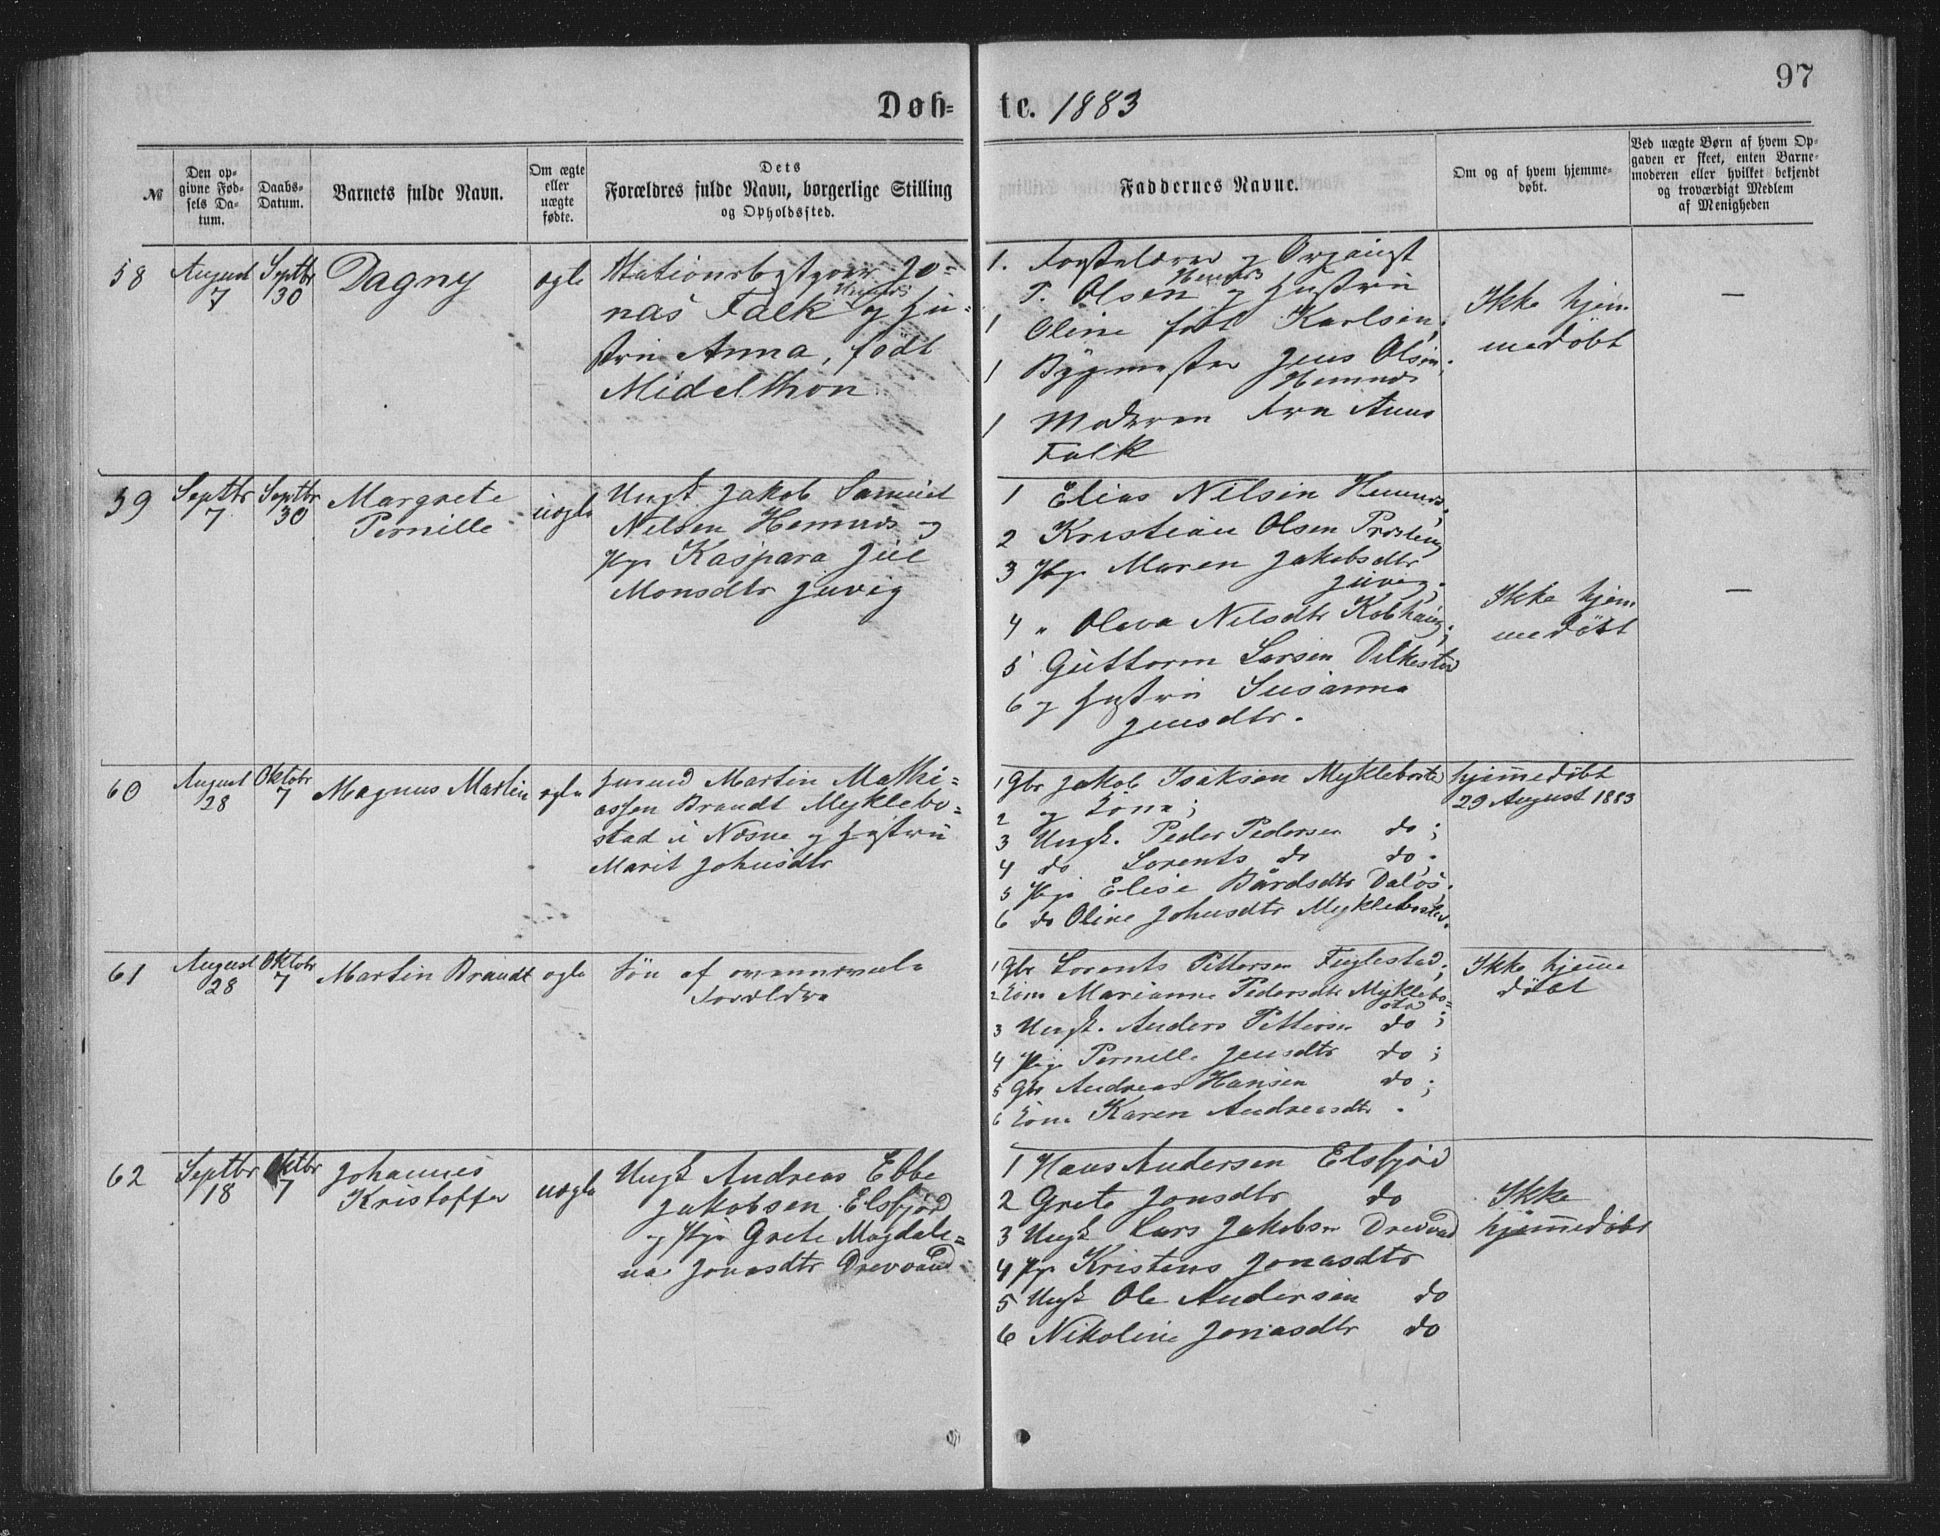 97
Døb= te. 1883
№
Den op-
givne Fød-
sels Da-
tum.
Daabs-
Datum.
Barnets fulde Navn.
Om ægte
eller
uægte
fødte.
Dets
Forældres fulde Navn, borgerlige Stilling
og Opholdssted.
Faddernes Navne.
Om og af hvem hjemme-
døbt.
Ved uægte Børn af hvem Op-
gaven er skeet, enten Barne-
moderen eller hvilket bekjendt
og troværdigt Medlem
af Menigheden
58
August
7
Septbr
30
Dagny
ægte
Jo=
nas Falk Hemnes og Hu=
stru Anna, født
Midelthon
1. og Organist
T. Olsen Hemnes og Hustru
1 Oline født Karlsen;
1 Bygmester Jens Olsen.
Hemnes
1 Moderen Fru Anna
Falk
Ikke hjem
medøbt
—
59
Septbr
7
Septbr
30
Margrete
Pernille
uægte
Ungk Jakob Samuel
Nilsen Hemnes og
Pige Kaspara Jul
Monsdtr Juvig
1 Elias Nilsen Hemnes,
2 Kristian Olsen
3 Pige Maren Jakobsdtr
Juvig;
4 " Oleva Nilsdtr
5 Guttorm Larsen
6 og Hustru Susanna
Jensdtr.
Ikke hjem
medøbt
—
60
August
28
Oktobr
7
Magnus Martin
ægte
Husmd Martin Mathi=
assen Brandt Myklebo=
stad i Næsne og Hustru
Marit Johnsdtr
1 Gbr Jakob Isaksen Myklebostd
2 og Kone;
3 Ungk. Peder Pedersen do;
4 do Lorents do do;
5 Pige Elise Bårdsdtr Dalos;
6 do Oline Johnsdtr Myklebostad.
hjemmedøbt
29 August 1883
61
August
28
Oktobr
7
Martin Brandt
ægte
Søn af ovennævnte
Forældre
1 Gbr Lorents Pettersen Fuglestad;
2 Kone Marianne Pedersdtr Myklebo=
stad
3 Ungk. Anders Pettersen do;
4 Pige Pernille Jensdtr do;
5 Gbr Andreas Hansen do;
6 Kone Karen Andreasdtr.
Ikke hjemme
døbt
62
Septbr
18
Oktbr
7
Johannes
Kristoffer
uægte
Ungk Andreas Ebbe
Jakobsen Elsfjord
og Pige Grete Magdale=
na Jonasdtr Drevvand
1 Hans Andersen Elsfjord
2 Grete Jonsdtr do
3 Ungk Lars Jakobsen Drevvand
4 Pige Kristens Jonasdtr
5 Ungk Ole Andersen do
6 Nikoline Jonasdtr do
Ikke
hjemmedøbt